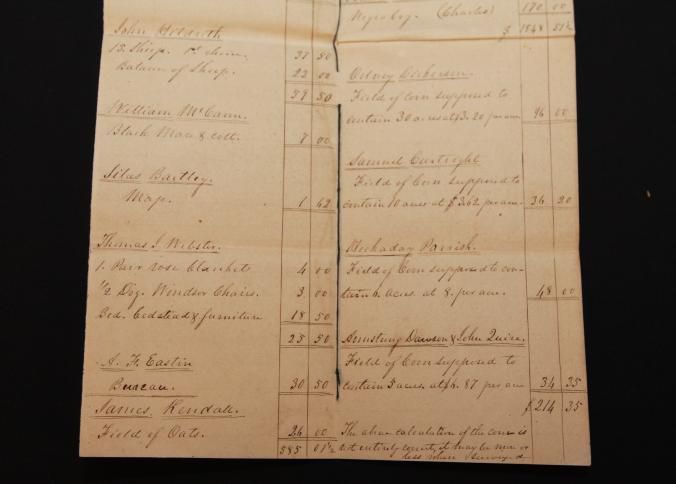 John
15 Sheep. 1st choice 37 50
Balance of Sheep. 22 00
59 50
William McCann.
Black Mare & colt. 7 00
Silas Bartley.
Map. 1 62
Thomas J. Webster.
1. Pair rose blankets 4 00
1/2 Doz. Windsor Chairs. 3 00
Bed. bedstead & furniture 18 50
25 50
A. F. Eastin
Bureau. 30 50
James. Kendall.
Field of Oats. 26 00
585 01 1/2
Negro boy. (Charles) 170 00
$ 1848 51 1/2
Field of corn supposed to
contain 30 acres at $3.20 per acre 96 00
Samuel Cartright
Field of Corn supposed to
contain 10 acres at $3.62 per acre. 36 20
Hockaday Parrish.
Field of Corn supposed to con-
tain 6 acres. at 8. per acre. 48 00
Armstrong Dawson & John
Field of Corn supposed to
contain 5 acres. at $6. 87 per acre 34 35
$ 214 35
The above calculation of the corn is
not entirely correct, it may be more or
less when surveyed